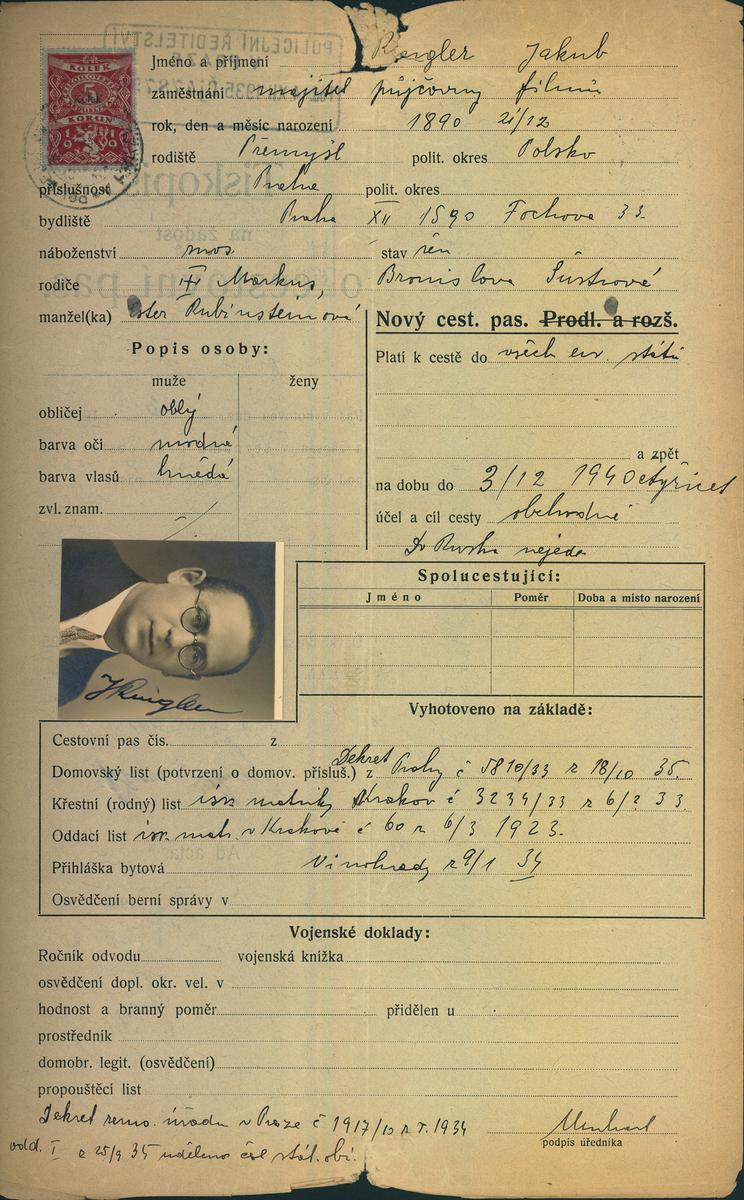 KOLEK
5
KORUN
Jméno a příjmení Ringler Jakub
zaměstnání majitel půjčovny filmů
rok, den a měsíc narození 1890 21/12
rodiště Přemyšl polit. okres Polsko
příslušnost Praha polit. okres
bydliště Praha XII 1590 Fochova 33
náboženství mos. stav žen
rodiče Markus, Bronislava Šustrová
manžel(ka) Ester Rubinsteinová
Nový cest. pas. Prodl. a rozš.
Popis osoby:
Platí k cestě do všech evr. států
muže ženy
obličej oblý
barva očí modré
barva vlasů hnědá
zvl. znam.
a zpět
na dobu do 3/12 1940 čtyřicet
účel a cíl cesty obchodně
Do Ruska nejede
Spolucestující:
Jméno Poměr Doba a místo narození
JRingler
Vyhotoveno na základě:
Cestovní pas čís. z
Domovský list (potvrzení o domov. přísluš.) z Dekret Prahy č 5810/33 z 18/10 35.
Křestní (rodný) list isr. matriky Krakov č 3234/33 z 6/2 33.
Oddací list isr. mat. v Krakově č 60 z 6/3 1923.
Přihláška bytová Vinohrady z 9/1 34
Osvědčení berní správy v
Vojenské doklady:
Ročník odvodu vojenská knížka
osvědčení dopl. okr. vel. v
hodnost a branný poměr přidělen u
prostředník
domobr. legit. (osvědčení)
propouštěcí list
Dekret zems. úřadu v Praze č 1917/10 z r. 1934
odd. I z 25/9 35 uděleno čsl stát. obč.
podpis úředníka